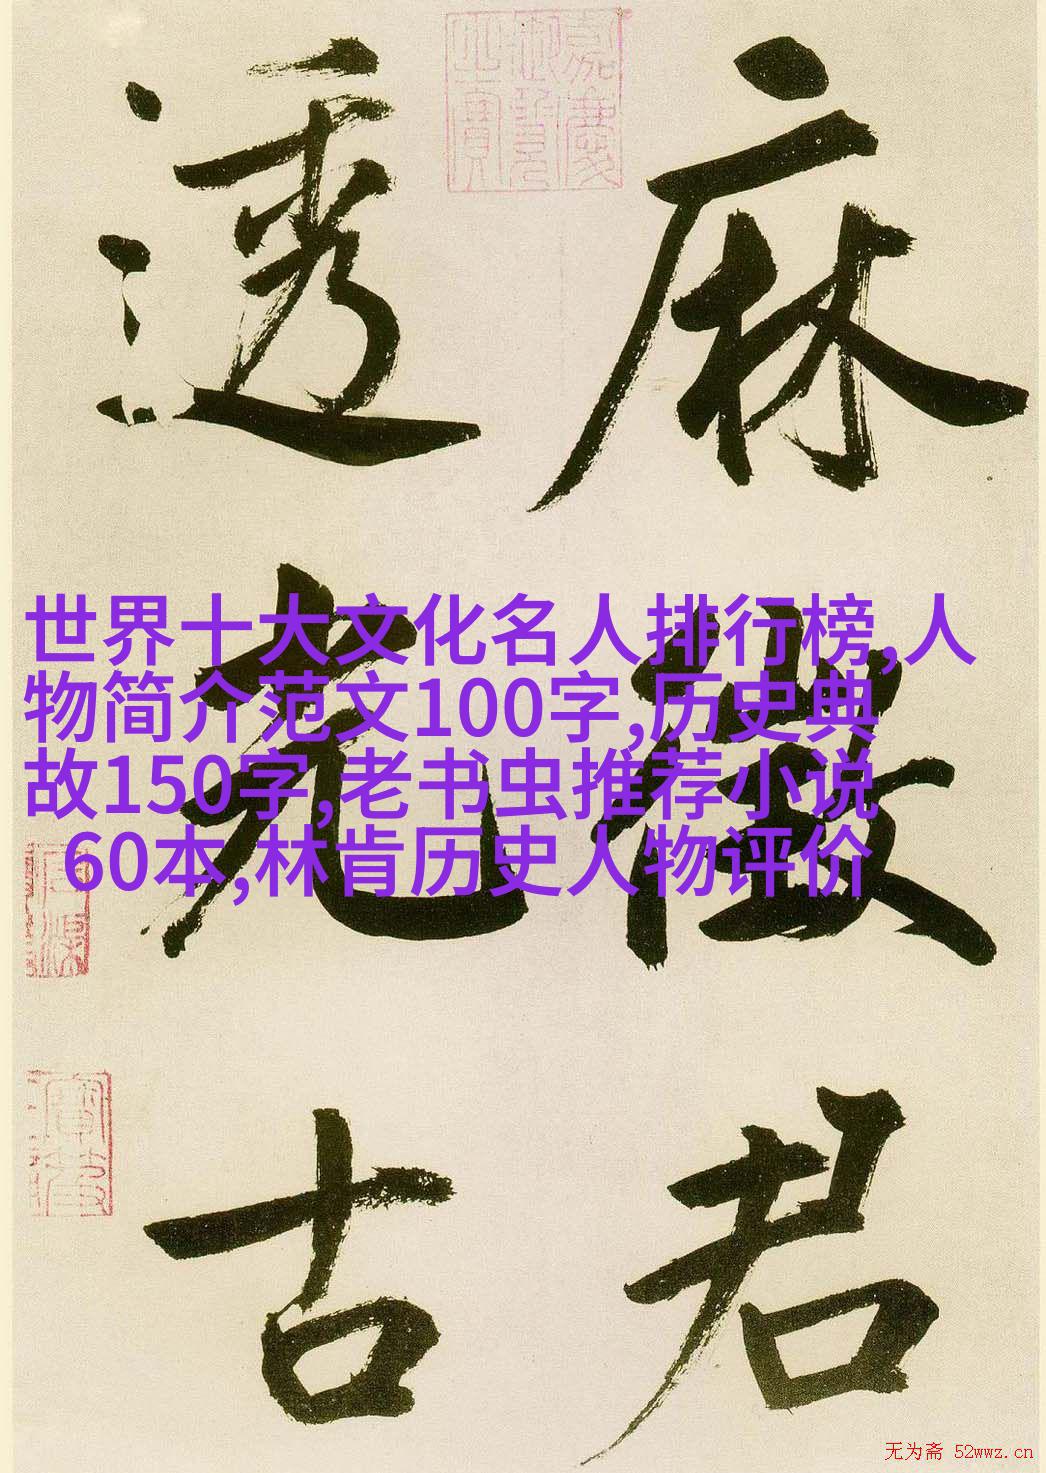 麻
徵
君
透
光
古
嘉慶
御覽
之寶
世界十大文化名人排行榜,人
物简介范文100字,历史典
故150字,老书虫推荐小说
60本,林肯历史人物评价
无为斋 52wwz.cn